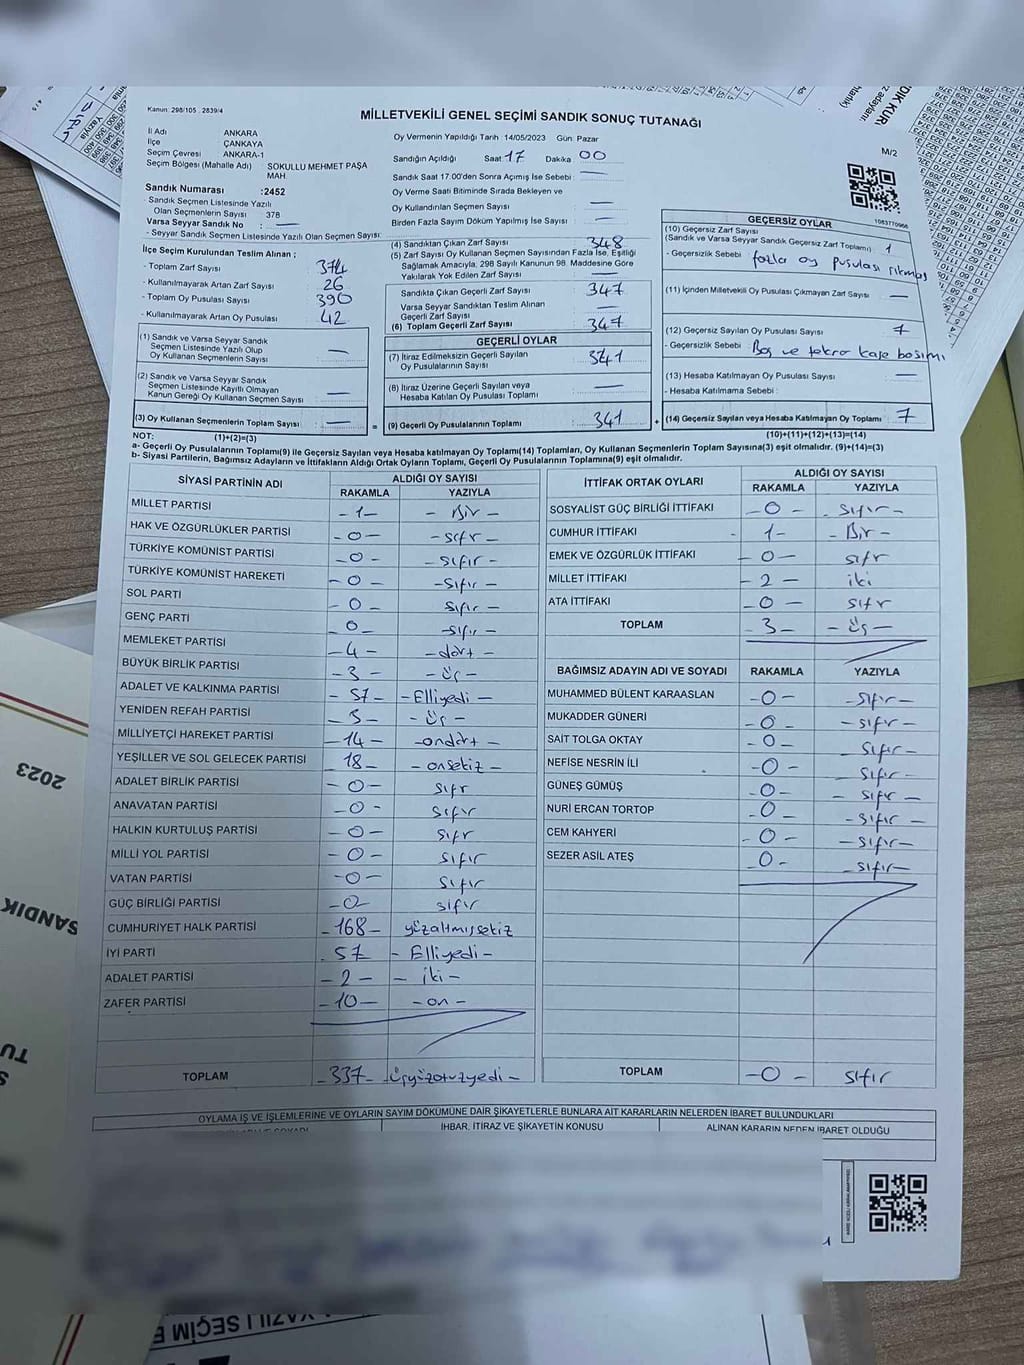 Kanun: 298/105 , 2839/4
MİLLETVEKİLİ GENEL SEÇİMİ SANDIK SONUÇ TUTANAĞI
M/2
İl Adı ANKARA
İlçe ÇANKAYA
Seçim Çevresi ANKARA-1
Seçim Bölgesi (Mahalle Adı) SOKULLU MEHMET PAŞA MAH.
Sandık Numarası :2452
- Sandık Seçmen Listesinde Yazılı
Olan Seçmenlerin Sayısı 378
Varsa Seyyar Sandık No : —
- Seyyar Sandık Seçmen Listesinde Yazılı Olan Seçmen Sayısı:
Oy Vermenin Yapıldığı Tarih 14/05/2023 Gün: Pazar
Sandığın Açıldığı Saat 17 Dakika 00
Sandık Saat 17.00'den Sonra Açımış İse Sebebi : —
Oy Verme Saati Bitiminde Sırada Bekleyen ve
Oy Kullandırılan Seçmen Sayısı —
Birden Fazla Sayım Döküm Yapılmış İse Sayısı —
1083770966
İlçe Seçim Kurulundan Teslim Alınan ;
- Toplam Zarf Sayısı 374
- Kullanılmayarak Artan Zarf Sayısı 26
- Toplam Oy Pusulası Sayısı 390
- Kullanılmayarak Artan Oy Pusulası 42
(1) Sandık ve Varsa Seyyar Sandık
Seçmen Listesinde Yazılı Olup
Oy Kullanan Seçmenlerin Sayısı —
(2) Sandık ve Varsa Seyyar Sandık
Seçmen Listesinde Kayıtlı Olmayan
Kanun Gereği Oy Kullanan Seçmen Sayısı —
(3) Oy Kullanan Seçmenlerin Toplam Sayısı —
(4) Sandıktan Çıkan Zarf Sayısı 348
(5) Zarf Sayısı Oy Kullanan Seçmen Sayısından Fazla İse, Eşitliği
Sağlamak Amacıyla, 298 Sayılı Kanunun 98. Maddesine Göre
Yakılarak Yok Edilen Zarf Sayısı —
Sandıkta Çıkan Geçerli Zarf Sayısı 347
Varsa Seyyar Sandıktan Teslim Alınan
Geçerli Zarf Sayısı —
(6) Toplam Geçerli Zarf Sayısı 347
GEÇERLİ OYLAR
(7) İtiraz Edilmeksizin Geçerli Sayılan
Oy Pusulalarının Sayısı 341
(8) İtiraz Üzerine Geçerli Sayılan veya
Hesaba Katılan Oy Pusulaları Toplamı —
= (9) Geçerli Oy Pusulalarının Toplamı 341
GEÇERSİZ OYLAR
(10) Geçersiz Zarf Sayısı
(Sandık ve Varsa Seyyar Sandık Geçersiz Zarf Toplamı) 1
- Geçersizlik Sebebi fazla oy pusulası çıkmış
(11) İçinden Milletvekili Oy Pusulası Çıkmayan Zarf Sayısı —
(12) Geçersiz Sayılan Oy Pusulası Sayısı 7
- Geçersizlik Sebebi Boş ve tekrar kaşe basımı
(13) Hesaba Katılmayan Oy Pusulası Sayısı —
- Hesaba Katılmama Sebebi :
+ (14) Geçersiz Sayılan veya Hesaba Katılmayan Oy Toplamı 7
NOT: (1)+(2)=(3) (10)+(11)+(12)+(13)=(14)
a- Geçerli Oy Pusulalarının Toplamı(9) ile Geçersiz Sayılan veya Hesaba katılmayan Oy Toplamı(14) Toplamları, Oy Kullanan Seçmenlerin Toplam Sayısına(3) eşit olmalıdır. (9)+(14)=(3)
b- Siyasi Partilerin, Bağımsız Adayların ve İttifakların Aldığı Ortak Oyların Toplamı, Geçerli Oy Pusulalarının Toplamına(9) eşit olmalıdır.
SİYASİ PARTİNİN ADI ALDIĞI OY SAYISI
RAKAMLA YAZIYLA
MİLLET PARTİSİ - 1 - - Bir -
HAK VE ÖZGÜRLÜKLER PARTİSİ - 0 - - sıfır -
TÜRKİYE KOMÜNİST PARTİSİ - 0 - - sıfır -
TÜRKİYE KOMÜNİST HAREKETİ - 0 - - sıfır -
SOL PARTİ - 0 - sıfır -
GENÇ PARTİ 0 - - sıfır -
MEMLEKET PARTİSİ - 4 - - dört -
BÜYÜK BİRLİK PARTİSİ - 3 - - üç -
ADALET VE KALKINMA PARTİSİ - 57 - Elliyedi -
YENİDEN REFAH PARTİSİ - 3 - - üç -
MİLLİYETÇİ HAREKET PARTİSİ - 14 - - ondört -
YEŞİLLER VE SOL GELECEK PARTİSİ 18 - - onsekiz -
ADALET BİRLİK PARTİSİ - 0 - sıfır
ANAVATAN PARTİSİ - 0 - sıfır
HALKIN KURTULUŞ PARTİSİ - 0 - sıfır
MİLLİ YOL PARTİSİ - 0 - sıfır
VATAN PARTİSİ - 0 - sıfır
GÜÇ BİRLİĞİ PARTİSİ - 0 sıfır
CUMHURİYET HALK PARTİSİ - 168 - yüzaltmışsekiz
İYİ PARTİ 57 - Elliyedi -
ADALET PARTİSİ - 2 - - iki -
ZAFER PARTİSİ - 10 - - on -
TOPLAM - 337 - üçyüzotuzyedi -
İTTİFAK ORTAK OYLARI ALDIĞI OY SAYISI
RAKAMLA YAZIYLA
SOSYALİST GÜÇ BİRLİĞİ İTTİFAKI - 0 - - sıfır -
CUMHUR İTTİFAKI - 1 - - Bir -
EMEK VE ÖZGÜRLÜK İTTİFAKI - 0 - sıfır
MİLLET İTTİFAKI - 2 - iki
ATA İTTİFAKI - 0 - sıfır
TOPLAM - 3 - - üç -
BAĞIMSIZ ADAYIN ADI VE SOYADI RAKAMLA YAZIYLA
MUHAMMED BÜLENT KARAASLAN - 0 - - sıfır -
MUKADDER GÜNERİ - 0 - - sıfır -
SAİT TOLGA OKTAY - 0 - sıfır -
NEFİSE NESRİN İLİ - 0 - sıfır -
GÜNEŞ GÜMÜŞ - 0 - - sıfır -
NURİ ERCAN TORTOP - 0 - sıfır -
CEM KAHYERİ - 0 - - sıfır -
SEZER ASİL ATEŞ 0 - - sıfır -
TOPLAM - 0 - sıfır
OYLAMA İŞ VE İŞLEMLERİNE VE OYLARIN SAYIM DÖKÜMÜNE DAİR ŞİKAYETLERLE BUNLARA AİT KARARLARIN NELERDEN İBARET BULUNDUKLARI
İHBAR, İTİRAZ VE ŞİKAYETİN KONUSU ALINAN KARARIN NEDEN İBARET OLDUĞU
2023
SANDIK
TU
YAZILI SEÇİM E